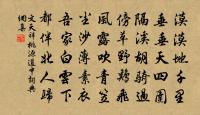 漠漠地千里
垂垂天四圍
隔溪胡騎過
傍草野鷄飛
風露吹青笠
塵沙薄素衣
吾家白雲下
都伴北人歸
文天祥桃源道中詞典
網集